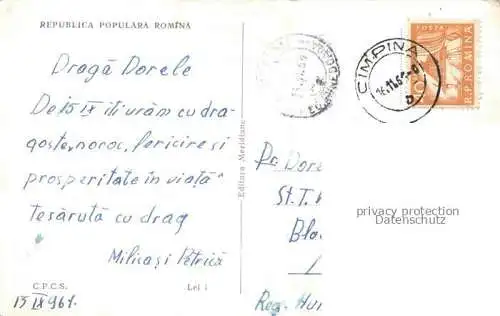 REPUBLICA POPULARĂ ROMÎNĂ
Dragă Dorele
De 15 IX îți urăm cu dra-
goste, noroc, fericire si
prosperitate in viață
te săruță cu drag
Milica si Petrică
C.P.C.S.
Lei 1
15 IX 961.
Editura Meridiane
CIMPINA
POSTA
R.P. ROMINA
St. T.
Reg. Hun
privacy protection
Datenschutz